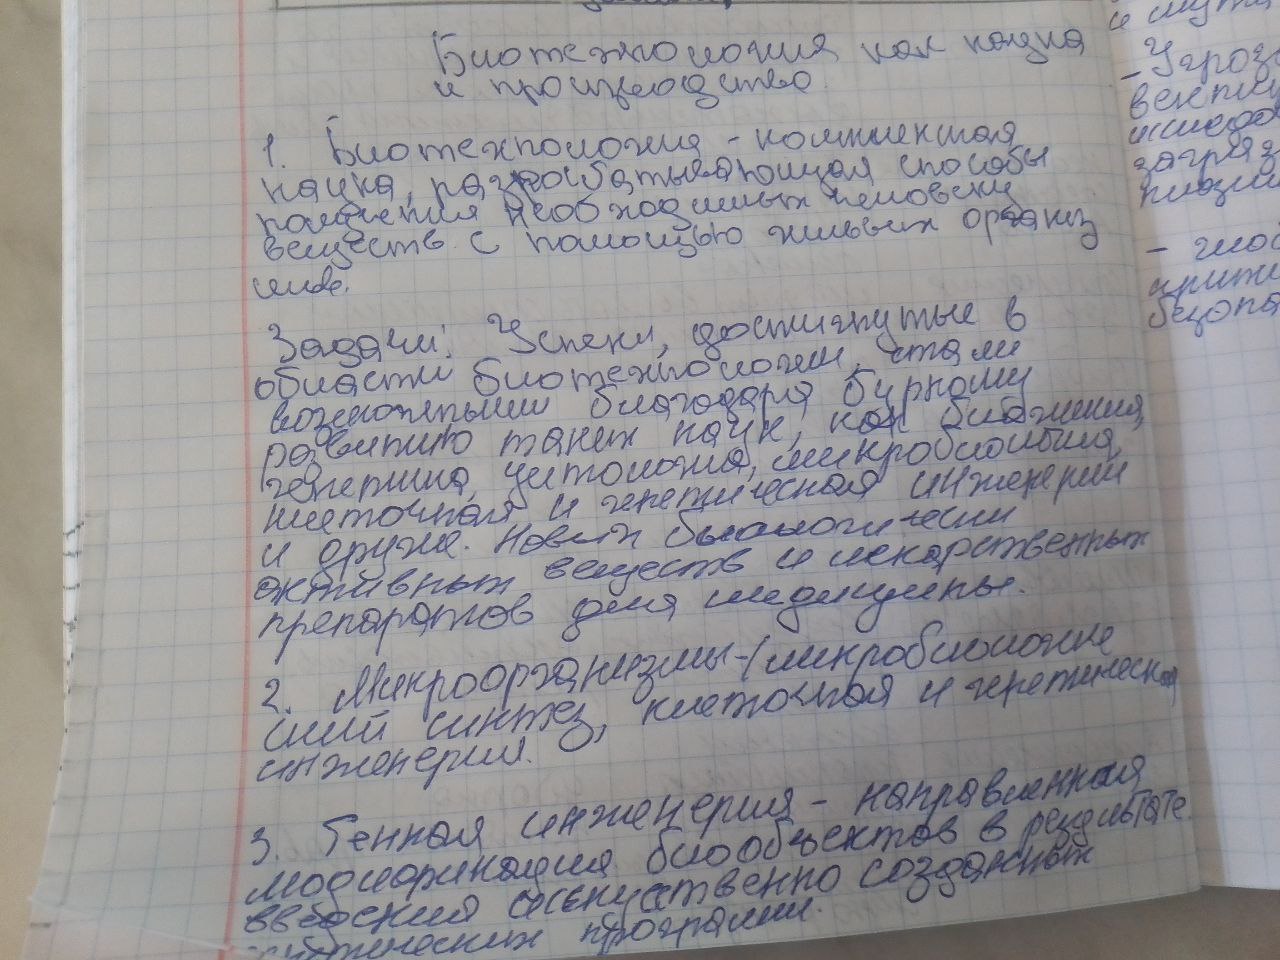 Биотехнология как наука
и производство.
1. Биотехнология - комплексная
наука, разрабатывающая способы
получения необходимых человеку
веществ с помощью живых организ
мов.
Задачи: Успехи, достигнутые в
области биотехнологии, стали
возможными благодаря бурному
развитию таких наук, как биохимия,
генетика, цитология, микробиология,
клеточная и генетическая инженерии
и другие. Новых биологически
активных веществ и лекарственных
препаратов для медицины.
2. Микроорганизмы-(микробиологиче
ский синтез, клеточная и генетическая
инженерия.
3. Генная инженерия - направленная
модификация биообъектов в результате
введения искусственно созданных
генетических программ.
и мута
- Угроз
загряз